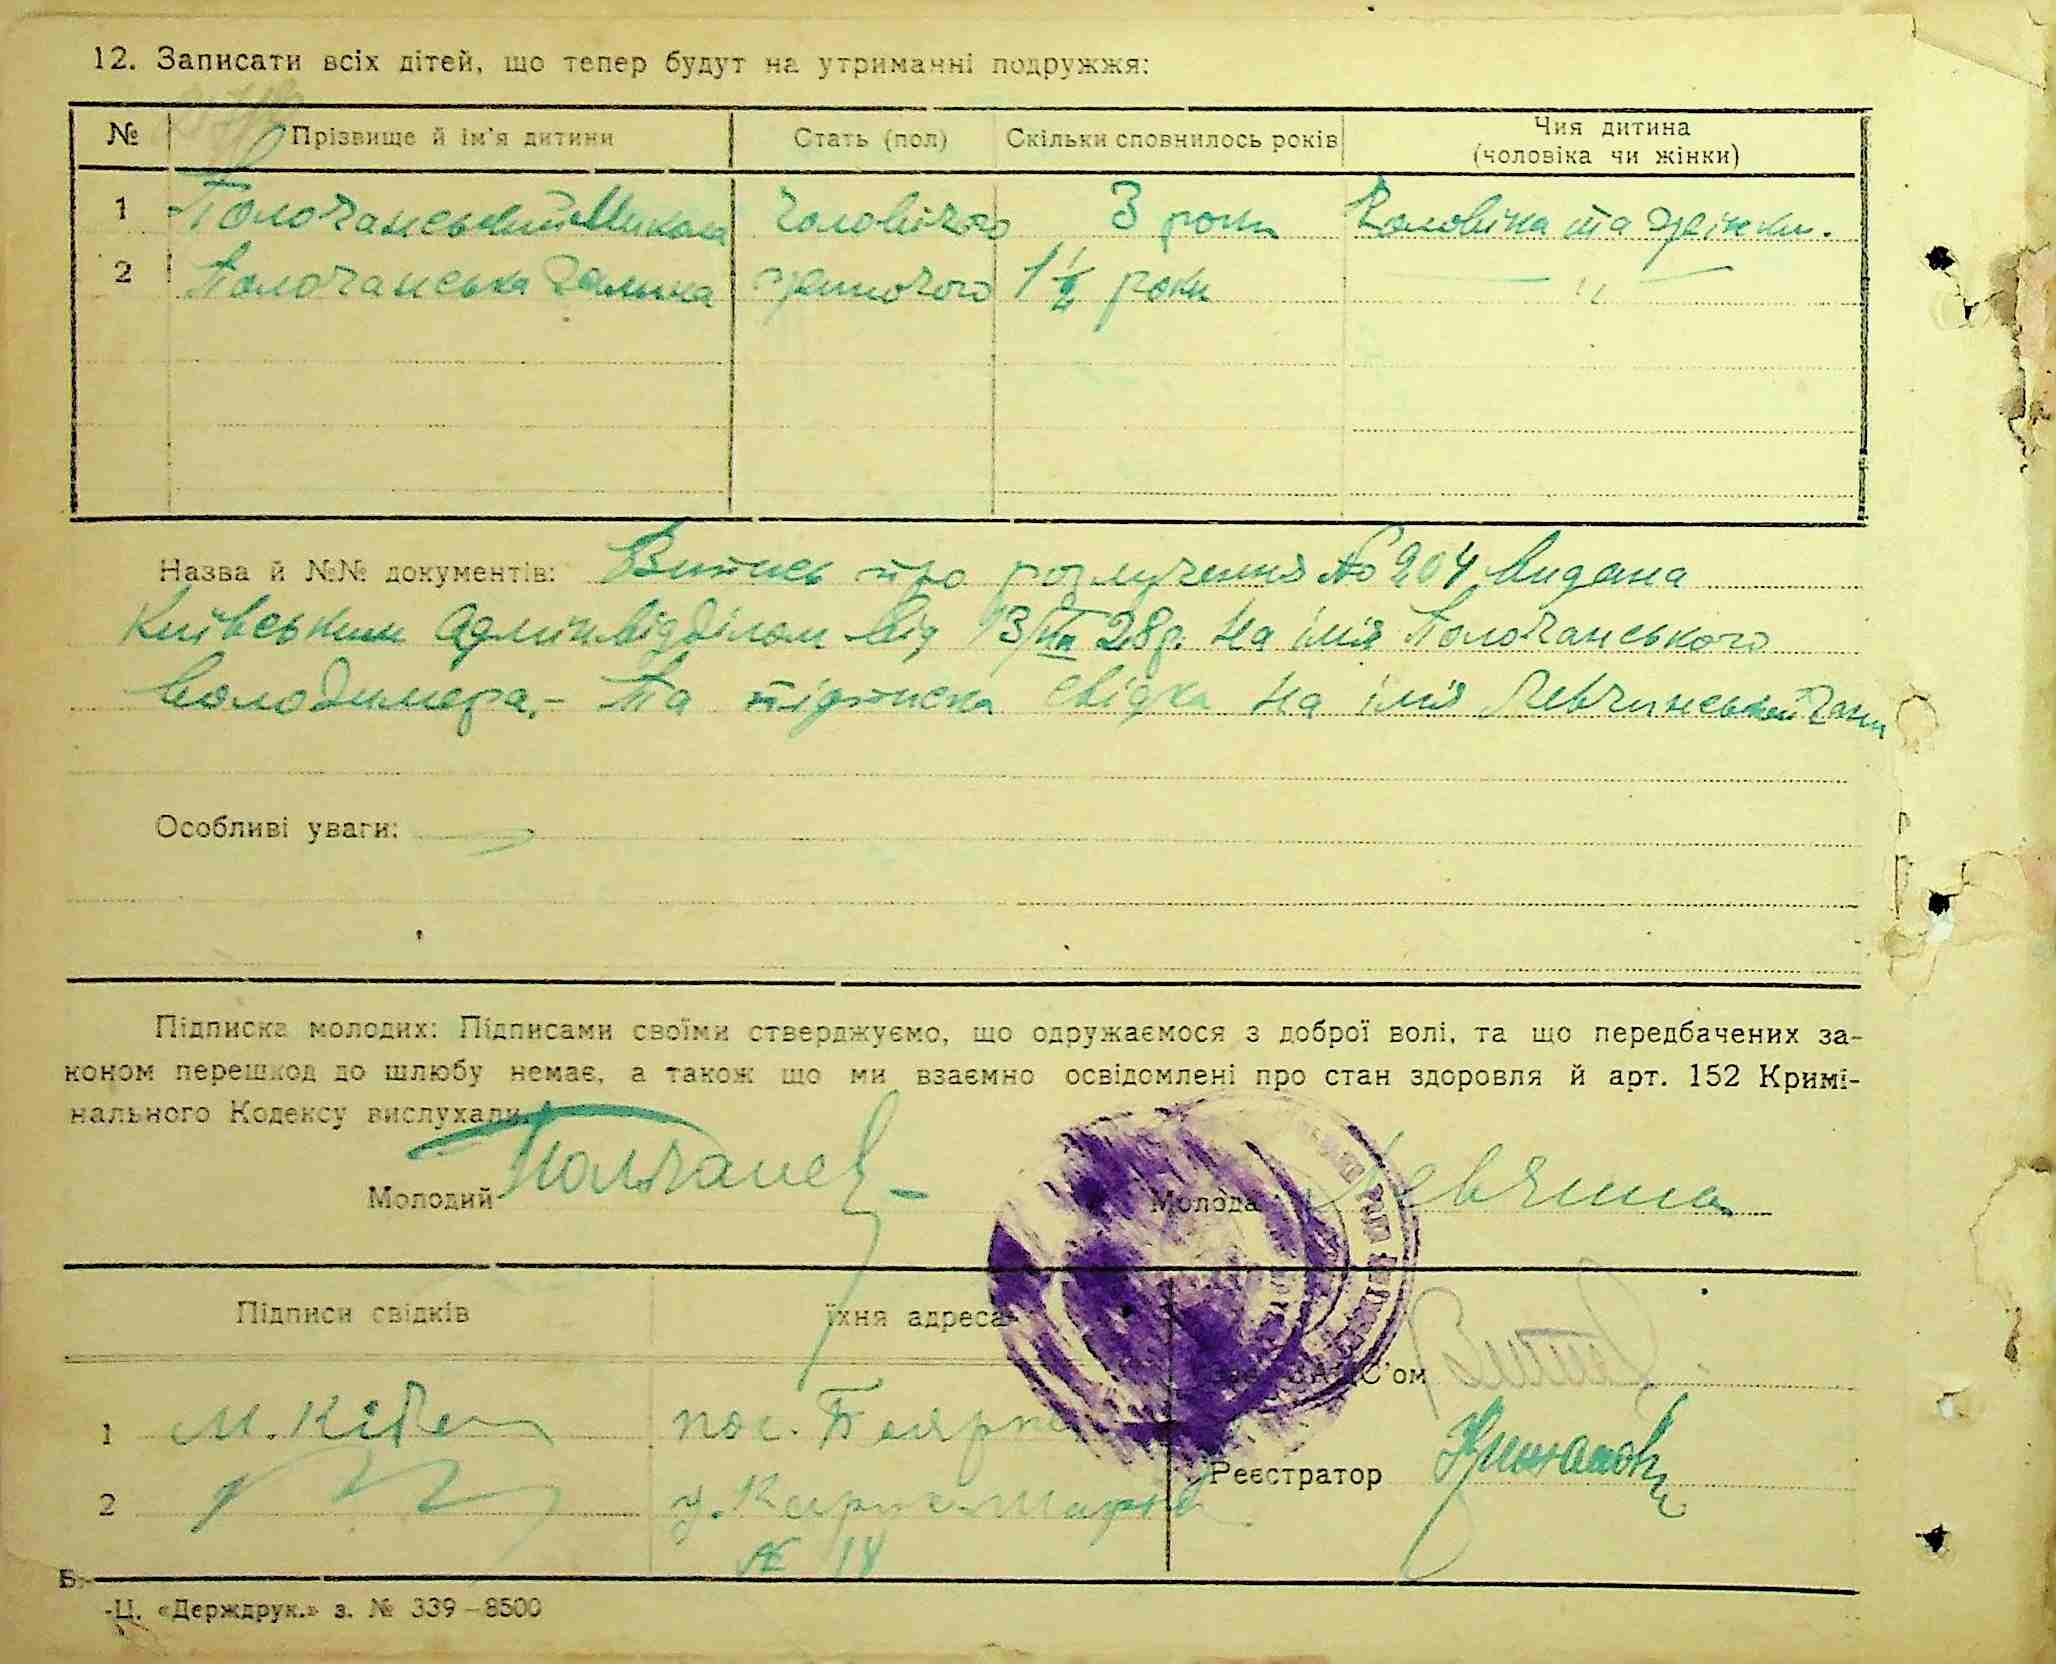 12. Записати всіх дітей, що тепер будут на утриманні подружжя:
№ Прізвище й ім'я дитини Стать (пол) Скільки сповнилось років Чия дитина (чоловіка чи жінки)
1 Полочанський Микола чоловічого 3 роки Чоловіка та жінки.
2 Полочанська Галина жіночого 1 1/2 роки — " —
Назва й №№ документів: Випись про розлучення № 204 видана
Київським Адмінвідділом від 13/VIII 28р. на ім'я Полочанського
Володимера,- та підписка свідка на ім'я Левчинської Гани
Особливі уваги:
Підписка молодих: Підписами своїми стверджуємо, що одружаємося з доброї волі, та що передбачених за-
коном перешкод до шлюбу немає, а також що ми взаємно освідомлені про стан здоровля й арт. 152 Кримі-
нального Кодексу вислухали.
Молодий Молода
Підписи свідків їхня адреса
ЗАГС'ом
1 пос. Боярка
Реєстратор
2 у. Карла-Маркса
№ 18
Б.-Ц. «Держдрук.» з. № 339–8500